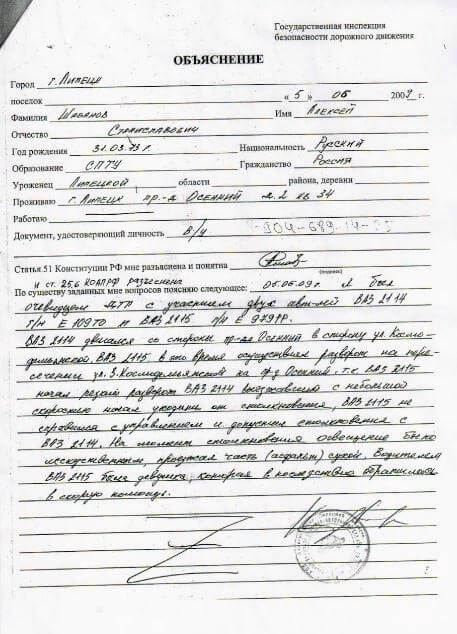 Государственная инспекция
безопасности дорожного движения
ОБЪЯСНЕНИЕ
Город г. Липецк
поселок « 5 » 06 2009 г.
Фамилия Шабанов Имя Алексей
Отчество Станиславович
Год рождения 31.03.73 г. Национальность Русский
Образование СПТУ Гражданство Россия
Уроженец Липецкой области района, деревни
Проживаю г. Липецк пр-д Осенний д.2 кв 34
Работаю
Документ, удостоверяющий личность В/у
Статья 51 Конституции РФ мне разъяснена и понятна
(подпись)
и ст. 25.6 КОАП РФ
По существу заданных мне вопросов поясняю следующее: 05.06.09г. Я был
очевидцем ДТП с участием двух авт-лей ВАЗ 2114
г/н Е 109 ТО и ВАЗ 2115 г/н Е 979
ВАЗ 2114 двигался со стороны пр-да Осенний в сторону ул. Космо-
демьянской. ВАЗ 2115 в это время осуществлял разворот на пере-
сечении ул. З. Космодемьянская на пр-д Осенний. т.к. ВАЗ 2115
начал резкий разворот ВАЗ 2114 с небольшой
скоростью начал уходить от столкновения, ВАЗ 2115 не
справился с управлением и допустил столкновение с
ВАЗ 2114. На момент столкновения освещение было
искусственным, проезжая часть (асфальт) сухой. Водителем
ВАЗ 2115 была девушка, которая в последствие обратилась
в скорую помощь.